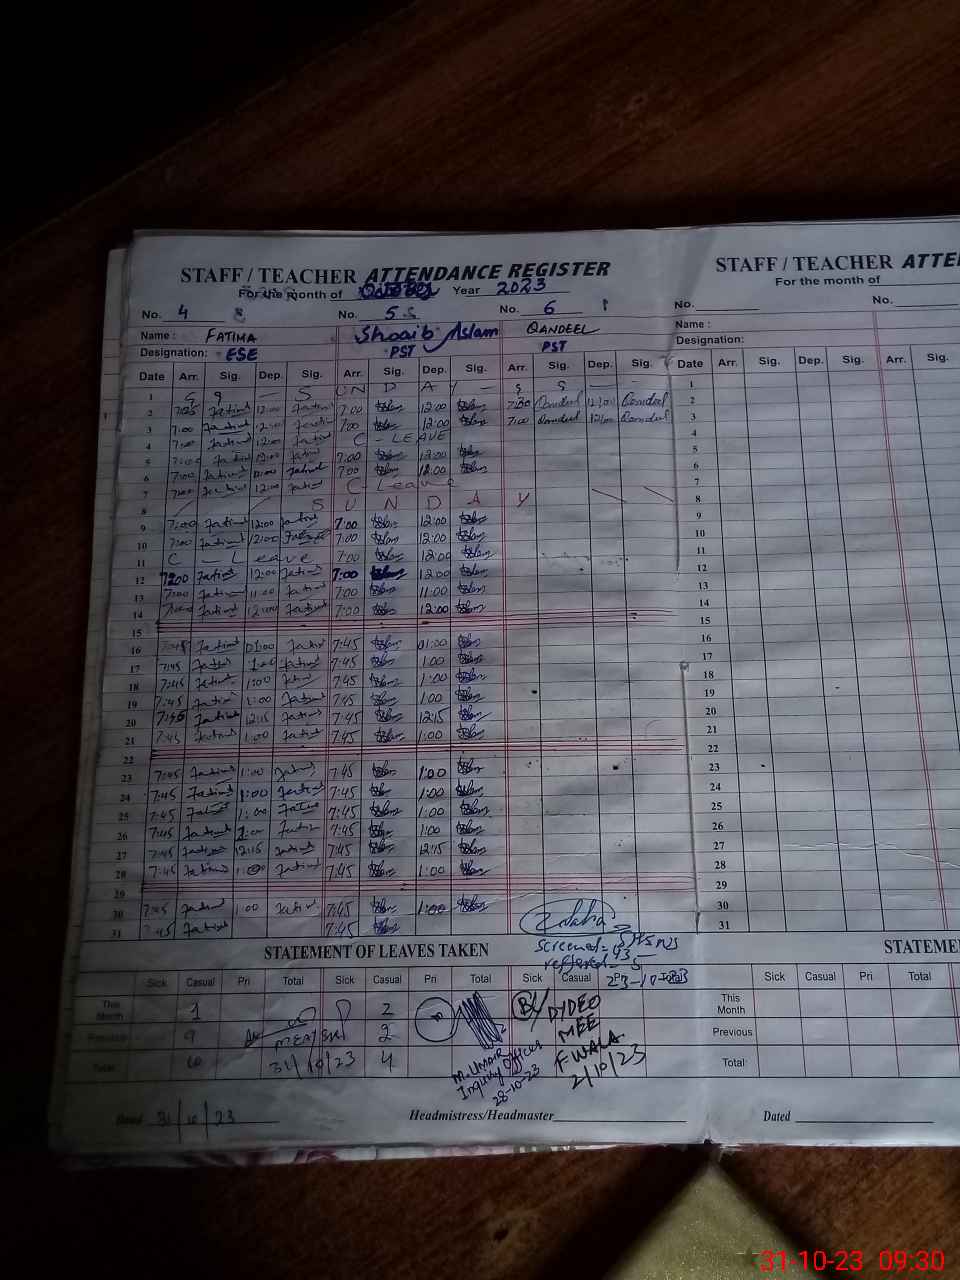 STAFF / TEACHER ATTENDANCE REGISTER
For the month of October Year 2023
No. 4 No. 5 No. 6
Name : FATIMA Shoaib Aslam QANDEEL
Designation: ESE PST PST
Date Arr. Sig. Dep. Sig. Arr. Sig. Dep. Sig. Arr. Sig. Dep. Sig.
1 S U N D A Y
2 7:25 Fatima 12:00 Fatima 7:00 Aslam 12:00 Aslam 7:30 Qandeel 12:00 Qandeel
3 7:00 Fatima 12:00 Fatima 7:00 Aslam 12:00 Aslam 7:00 Qandeel 12:00 Qandeel
4 7:00 Fatima 12:00 Fatima C - LEAVE
5 7:00 Fatima 12:00 Fatima 7:00 Aslam 12:00 Aslam
6 7:00 Fatima Fatima 7:00 Aslam Aslam
7 7:00 Fatima 12:00 Fatima C - Leave
8 S U N D A Y
9 7:00 Fatima 12:00 Fatima 7:00 Aslam 12:00 Aslam
10 7:00 Fatima 12:00 Fatima 7:00 Aslam 12:00 Aslam
11 C - Leave 7:00 Aslam 12:00 Aslam
12 7:00 Fatima 12:00 Fatima 7:00 Aslam 12:00 Aslam
13 7:00 Fatima 11:00 Fatima 7:00 Aslam 11:00 Aslam
14 7:00 Fatima 12:00 Fatima 7:00 Aslam 12:00 Aslam
15
16 7:45 Fatima 01:00 Fatima 7:45 Aslam 01:00 Aslam
17 7:45 Fatima 1:00 Fatima 7:45 Aslam 1:00 Aslam
18 7:45 Fatima 1:00 Fatima 7:45 Aslam 1:00 Aslam
19 7:45 Fatima 1:00 Fatima 7:45 Aslam 1:00 Aslam
20 7:45 Fatima 12:15 Fatima 7:45 Aslam 12:15 Aslam
21 7:45 Fatima 1:00 Fatima 7:45 Aslam 1:00 Aslam
22
23 7:45 Fatima 1:00 Fatima 7:45 Aslam 1:00 Aslam
24 7:45 Fatima 1:00 Fatima 7:45 Aslam 1:00 Aslam
25 7:45 Fatima 1:00 Fatima 7:45 Aslam 1:00 Aslam
26 7:45 Fatima 1:00 Fatima 7:45 Aslam 1:00 Aslam
27 7:45 Fatima 12:15 Fatima 7:45 Aslam 12:15 Aslam
28 7:45 Fatima 1:00 Fatima 7:45 Aslam 1:00 Aslam
29
30 7:45 Fatima 1:00 Fatima 7:45 Aslam 1:00 Aslam
31 7:45 Fatima 7:45 Aslam
Screened =
reffered = 5
23-10-2023
STATEMENT OF LEAVES TAKEN
Sick Casual Pri Total Sick Casual Pri Total Sick Casual Pri Total
This Month 1 2
Previous 9 2
Total: 10 4
31/10/23
M.Umar
Inquiry Officer
28-10-23
By DYDEO
MEE
F WALA
2/10/23
Dated 31/10/23 Headmistress/Headmaster
STAFF / TEACHER ATTE
For the month of
No. No.
Name :
Designation:
Date Arr. Sig. Dep. Sig. Arr. Sig.
1
2
3
4
5
6
7
8
9
10
11
12
13
14
15
16
17
18
19
20
21
22
23
24
25
26
27
28
29
30
31
STATEME
Sick Casual Pri Total Sick
This Month
Previous
Total:
Dated
31-10-23 09:30